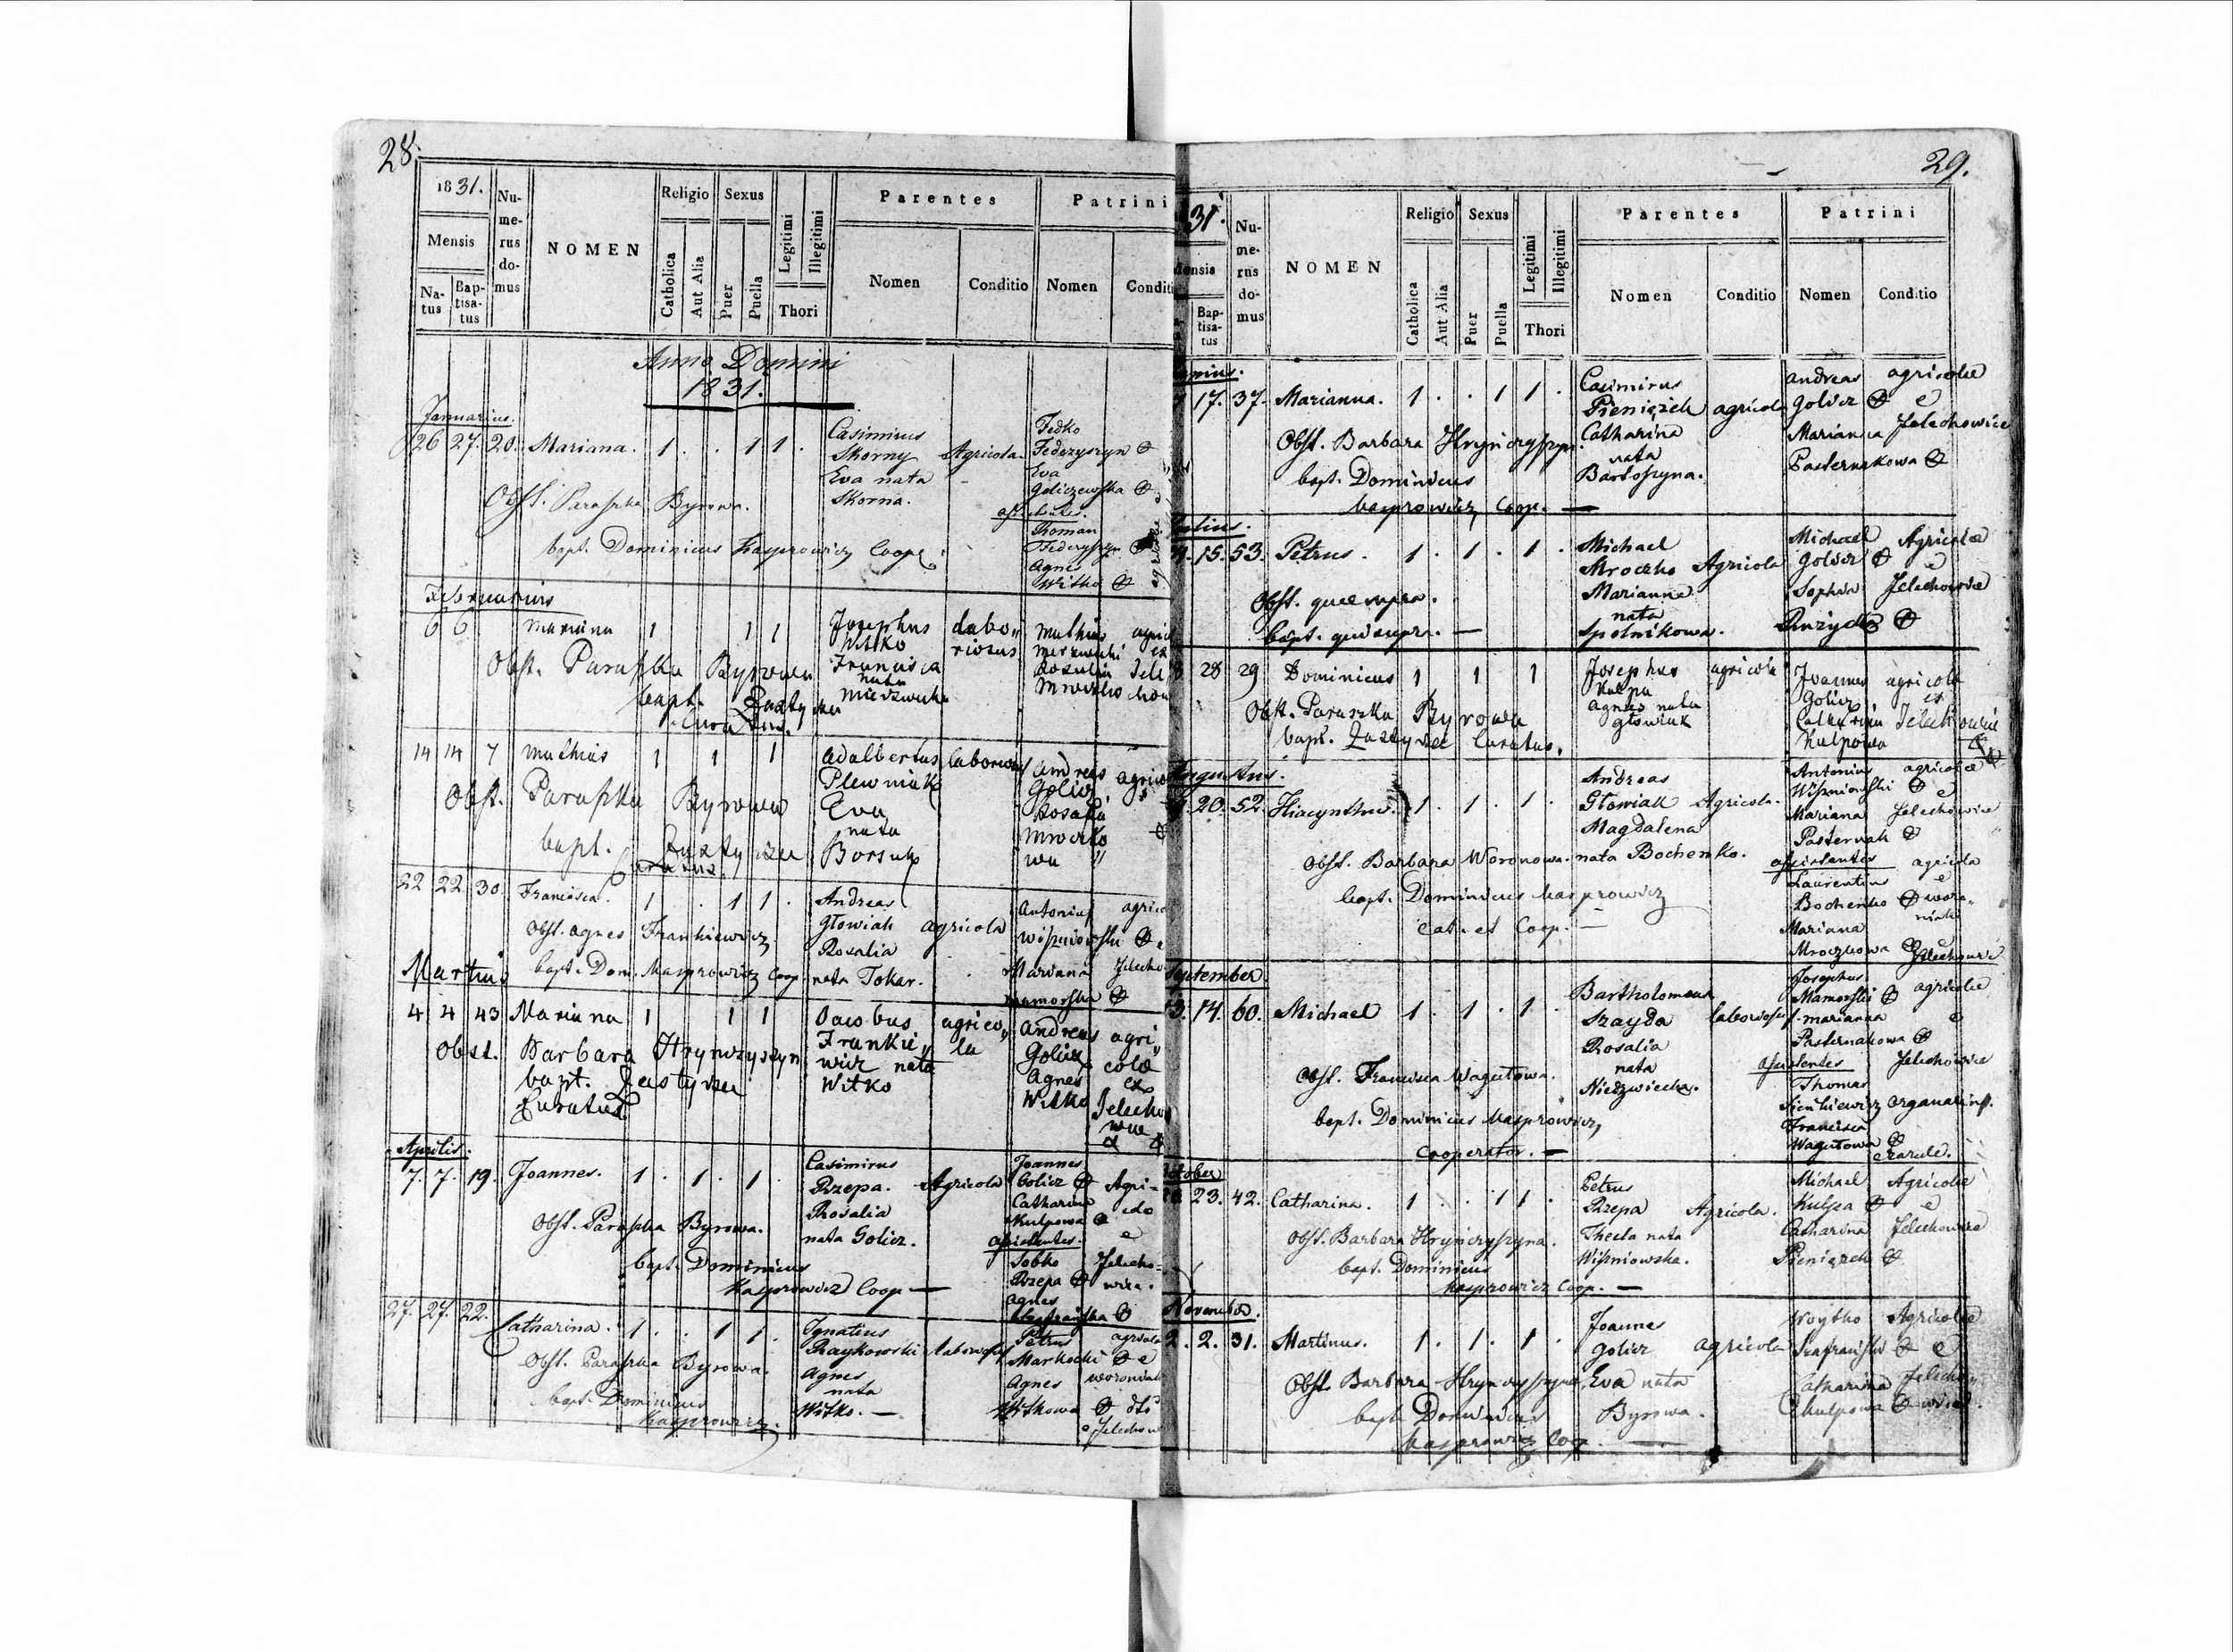 28.
1831.
Mensis
Na-
tus
Bap-
tisa-
tus
Nu-
me-
rus
do-
mus
NOMEN
Religio
Catholica
Aut Alia
Sexus
Puer
Puella
Legitimi
Illegitimi
Thori
Parentes
Nomen
Conditio
Patrini
Nomen
Conditi
Anno Domini
1831.
Januarius.
26 27. 20. Mariana. 1 . . 1 1 .
Casimirus
Skorny Agricola.
Eva nata
Skorna.
Fedko
Federyszyn
Eva
Goliczewska
assistentes.
Roman
Federyszyn
Agnes
Witko
Obst. Paraszka Byrowa.
bapt. Dominicus Kasprowicz Coop.
Februarius
6 6 Mariana 1 1 1
Josephus labo„
Witko riosus
Francisca
nata
Miedzwecka
Mathias agric
Rosalia
Mroczko
Obst. Paraszka Byrowa
bapt. Zastyrzec
Curatus.
14 14 7 Mathias 1 1 1
Adalbertus laborios
Plewniak
Eva
nata
Borsuk
Andreas agrico
Golicz
Rosalia
Mroczko
wa
Obst. Paraszka Byrowa
bapt. Zastyrzec
Curatus.
22 22 30. Francisca. 1 . . 1 1 .
Andreas
Głowiak agricola
Rosalia
nata Tokar.
Antonius agrico
Wiszniowski
Mariana Jelecho
Mamorska
Obst. Agnes Frankiewicz
bapt. Dom. Kasprowicz Coop.
Martius
4 4 43 Mariana 1 1 1
Jacobus agrico„
Frankie„ la
wicz nata
Witko
Andreas agri„
Golicz colae
Agnes ex
Witko Jelecho
wce
Obst. Barbara Hrynczyszyn
bapt. Zastyrzec
Curatus
Aprilis.
7. 7. 19. Joannes. 1 . 1 . 1 .
Casimirus
Rzepa. Agricola
Rosalia
nata Golicz.
Joannes
Golicz Agri-
Catharina colae
Kulpowa e
assistentes.
Sobko Jelecho-
Rzepa wice.
Agnes
Obst. Paraszka Byrowa.
bapt. Dominicus
Kasprowicz Coop —
27. 27. 22. Catharina. 1 . . 1 1 .
Ignatius
Raykowski laboriosus
Agnes
nata
Witko. —
Petrus agricola
Markocki e
Agnes
Witkowa
Jelechow
Obst. Paraszka Byrowa.
bapt. Dominicus
Kasprowicz
29.
31.
Mensis
Bap-
tisa-
tus
Nu-
me-
rus
do-
mus
NOMEN
Religio
Catholica
Aut Alia
Sexus
Puer
Puella
Legitimi
Illegitimi
Thori
Parentes
Nomen
Conditio
Patrini
Nomen
Conditio
17. 37. Marianna. 1 . . 1 1 .
Casimirus
Pieniążek agricola
Catharina
nata
Bartoszyna.
Andreas agricolae
Golicz e
Marianna Jelechowice
Pasternakowa
Obst. Barbara Hryńczyszyn.
bapt. Dominicus
Kasprowicz Coop. —
15. 53. Petrus. 1 . 1 . 1 .
Michael
Mroczko Agricola
Marianna
nata
Spolnikowa.
Michael Agricolae
Golicz e
Sophia Jelechowice
Obst. quae supra.
bapt. qui supra. —
28 29 Dominicus 1 1 1
Josephus agricola
Kulpa
Agnes nata
Głowiak
Joannes agricolae
Golicz ex
Catharina Jelechowice
Kulpowa
Obst. Paraszka Byrowa
bapt. Zastyrzec Curatus.
Augustus.
20. 52. Hiacynthus. 1 . 1 . 1 .
Andreas
Głowiak Agricola.
Magdalena
nata Bochenko.
Antonius agricolae
Wiszniowski e
Mariana Jelechowice
Pasternak
assistentes agricola
Laurentius e
Bochenko woro„
niaki
Mariana
Mroczkowa Jelechowice
Obst. Barbara Woronowa.
bapt. Dominicus Kasprowicz
Cat. et Coop. —
September.
13. 14. 60. Michael 1 . 1 . 1 .
Bartholomeus
Szayda laboriosus
Rosalia
nata
Niedzwiecka.
Josephus agricolae
Mamorski
Marianna e
Pasternakowa
assistentes Jelechowice
Thomas
Sienkiewicz Organarius.
Francisca
Wagutowa
Obst. Francisca Wagutowa.
bapt. Dominicus Kasprowicz,
Cooperator. —
October
23. 42. Catharina. 1 . . 1 1 .
Petrus
Rzepa Agricola.
Thecla nata
Wiszniowska.
Michael Agricolae
Kulpa e
Catharina Jelechowice
Pieniążek
Obst. Barbara Hryńczyszyna.
bapt. Dominicus
Kasprowicz Coop. —
November.
2. 2. 31. Martinus. 1 . 1 . 1 .
Joannes
Golicz agricola
Eva nata
Byrowa.
Woytko Agricolae
Szafrański e
Catharina Jelecho„
Kulpowa wice.
Obst. Barbara Hrynczyszyna,
bapt. Dominicus
Kasprowicz Coop. —